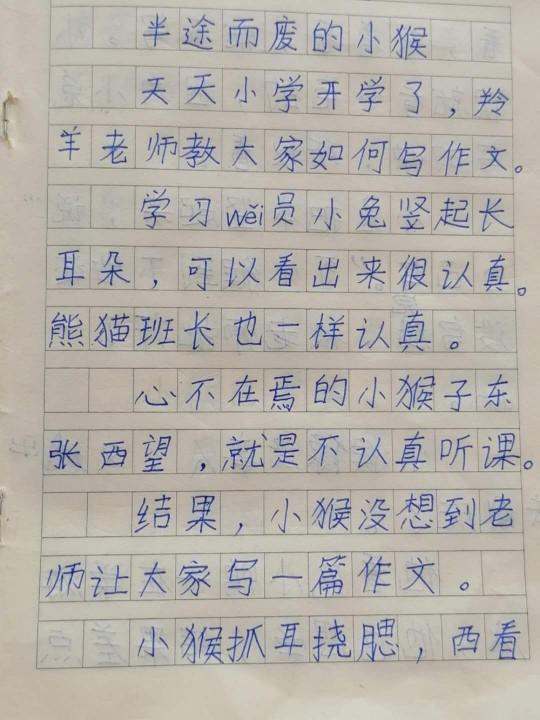 半途而废的小猴
天天小学开学了，羚
羊老师教大家如何写作文。
学习wěi员小兔竖起长
耳朵，可以看出来很认真。
熊猫班长也一样认真。
心不在焉的小猴子东
张西望，就是不认真听课。
结果，小猴没想到老
师让大家写一篇作文。
小猴抓耳挠腮，西看